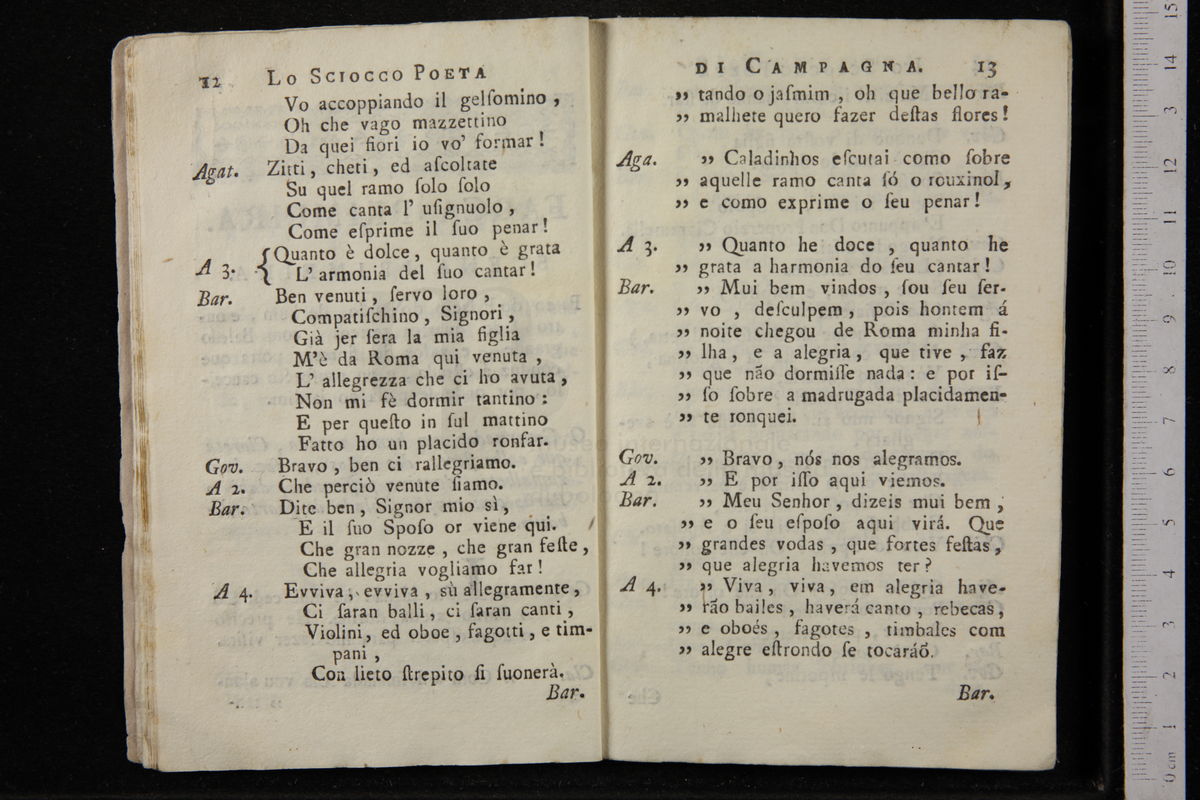 12 LO SCIOCCO POETA
Vo accoppiando il gelſomino ,
Oh che vago mazzettino
Da quei fiori io vo' formar !
Agat. Zitti , cheti , ed aſcoltate
Su quel ramo ſolo ſolo
Come canta l' uſignuolo ,
Come eſprime il ſuo penar !
A 3. { Quanto è dolce , quanto è grata
L' armonia del ſuo cantar !
Bar. Ben venuti , ſervo loro ,
Compatiſchino , Signori ,
Già jer ſera la mia figlia
M'è da Roma qui venuta ,
L' allegrezza che ci ho avuta ,
Non mi fè dormir tantino :
E per queſto in ſul mattino
Fatto ho un placido ronfar.
Gov. Bravo , ben ci rallegriamo.
A 2. Che perciò venute ſiamo.
Bar. Dite ben , Signor mio sì ,
E il ſuo Spoſo or viene qui.
Che gran nozze , che gran feſte ,
Che allegria vogliamo far !
A 4. Evviva , evviva , sù allegramente ,
Ci ſaran balli , ci ſaran canti ,
Violini , ed oboe , fagotti , e tim-
pani ,
Con lieto ſtrepito ſi ſuonerà.
Bar.
DI CAMPAGNA. 13
„ tando o jaſmim , oh que bello ra-
„ malhete quero fazer deſtas flores !
Aga. „ Caladinhos eſcutai como ſobre
„ aquelle ramo canta ſó o rouxinol ,
„ e como exprime o ſeu penar !
A 3. „ Quanto he doce , quanto he
„ grata a harmonia do ſeu cantar !
Bar. „ Mui bem vindos , ſou ſeu ſer-
„ vo , deſculpem , pois hontem á
„ noite chegou de Roma minha fi-
„ lha , e a alegria , que tive , faz
„ que não dormiſſe nada : e por iſ-
„ ſo ſobre a madrugada placidamen-
„ te ronquei.
Gov. „ Bravo , nós nos alegramos.
A 2. „ E por iſſo aqui viemos.
Bar. „ Meu Senhor , dizeis mui bem ,
„ e o ſeu eſpoſo aqui virá. Que
„ grandes vodas , que fortes feſtas ,
„ que alegria havemos ter ?
A 4. „ Viva , viva , em alegria have-
„ rão bailes , haverá canto , rebecas ,
„ e oboés , fagotes , timbales com
„ alegre eſtrondo ſe tocaráõ.
Bar.
0 cm 1 2 3 4 5 6 7 8 9 10 11 12 13 14 15